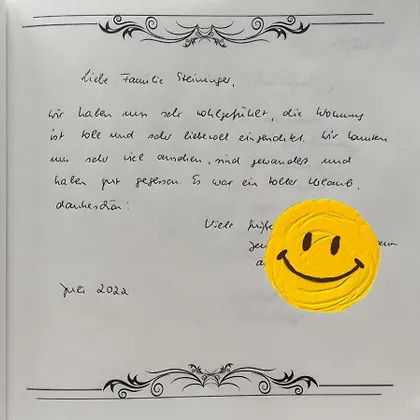 Liebe Familie Steininger,
wir haben uns sehr wohlgefühlt, die Wohnung
ist toll und sehr liebevoll eingerichtet. Wir konnten
uns sehr viel ansehen, sind gewandert und
haben gut gegessen. Es war ein toller Urlaub,
dankeschön!
Viele
Juli 2022